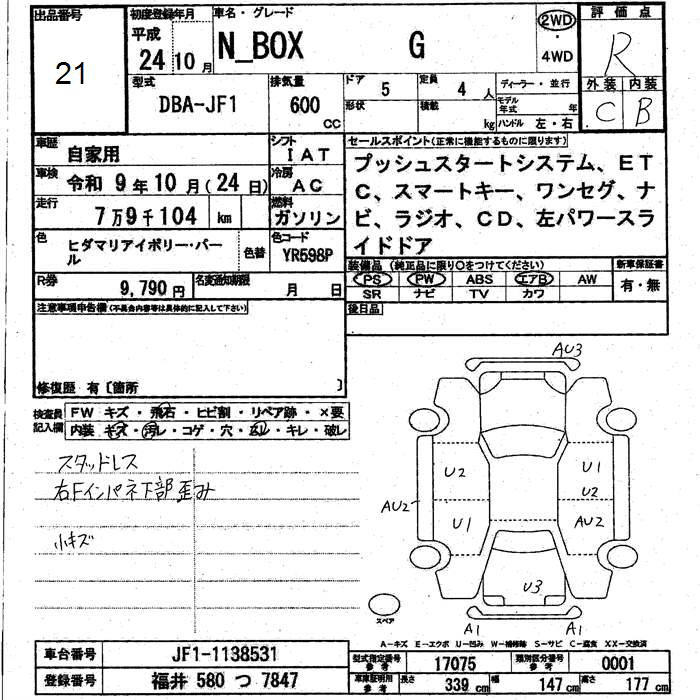 出品番号
21
初度登録年月
平成
24 10 月
車名・グレード
N_BOX G
2WD
・
4WD
評価点
R
外装 内装
C B
型式
DBA-JF1
排気量
600
CC
ドア 5
形状
定員 4 人
積載 kg
ディーラー・並行
モデル年式 年
ハンドル 左・右
車歴 自家用
車検 令和 9 年 10 月 (24 日)
走行 7 万 9 千 104 km
色 ヒダマリアイボリー・パー
ル
色替
シフト IAT
冷房 AC
燃料 ガソリン
色コード YR598P
R券 9,790 円
名変通知期限 月 日
セールスポイント(正常に機能するものに限ります)
プッシュスタートシステム、ET
C、スマートキー、ワンセグ、ナ
ビ、ラジオ、CD、左パワースラ
イドドア
装備品 (純正品に限り○をつけてください)
PS PW ABS エアB AW
SR ナビ TV カワ
新車保証書
有・無
後日品
注意事項申告欄(不具合内容等は具体的に記入して下さい)
修復歴 有〔箇所 〕
検査員記入欄
FW キズ・飛石・ヒビ割・リペア跡・×要
内装 キズ・汚レ・コゲ・穴・ムレ・キレ・破レ
スタッドレス
右Fインパネ下部歪み
小キズ
AU3
U2
U1
U2
AU2
U1
AU2
U3
A1 A1
スペア
A-キズ E-エクボ U-凹み W-補修跡 S-サビ C-腐食 XX-交換済
車台番号 JF1-1138531
登録番号 福井 580 つ 7847
型式指定番号 参考 17075
類別区分番号 参考 0001
車庫証明用 参考
長さ 339 cm 幅 147 cm 高さ 177 cm